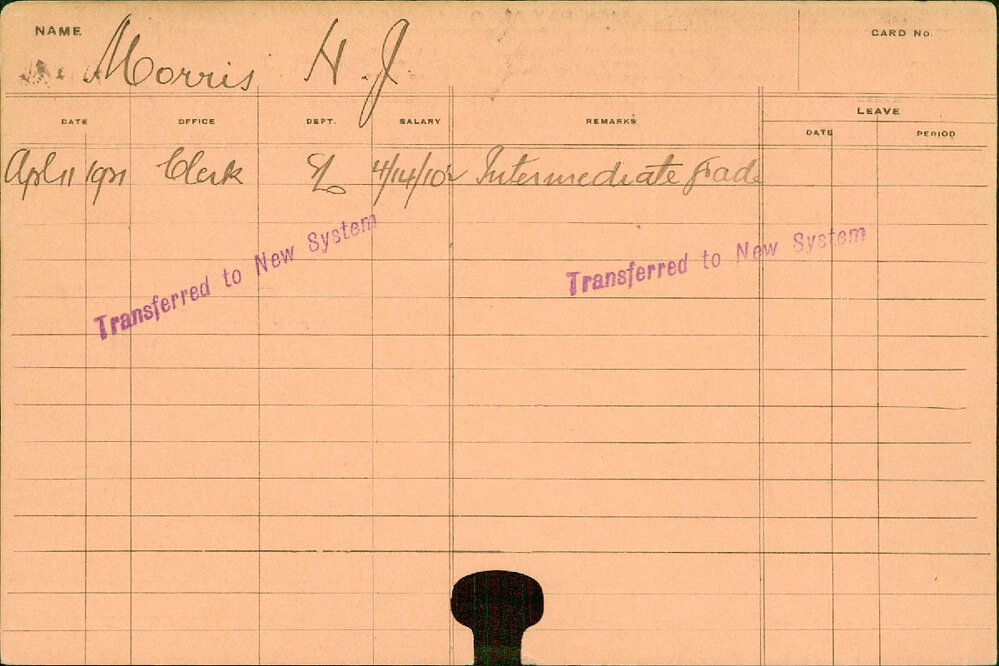 NAME Morris H. J. CARD No.
DATE OFFICE DEPT. SALARY REMARKS LEAVE
DATE PERIOD
Apl 11 1921 Clerk 4/14/10 Intermediate Grade
Transferred to New System
Transferred to New System